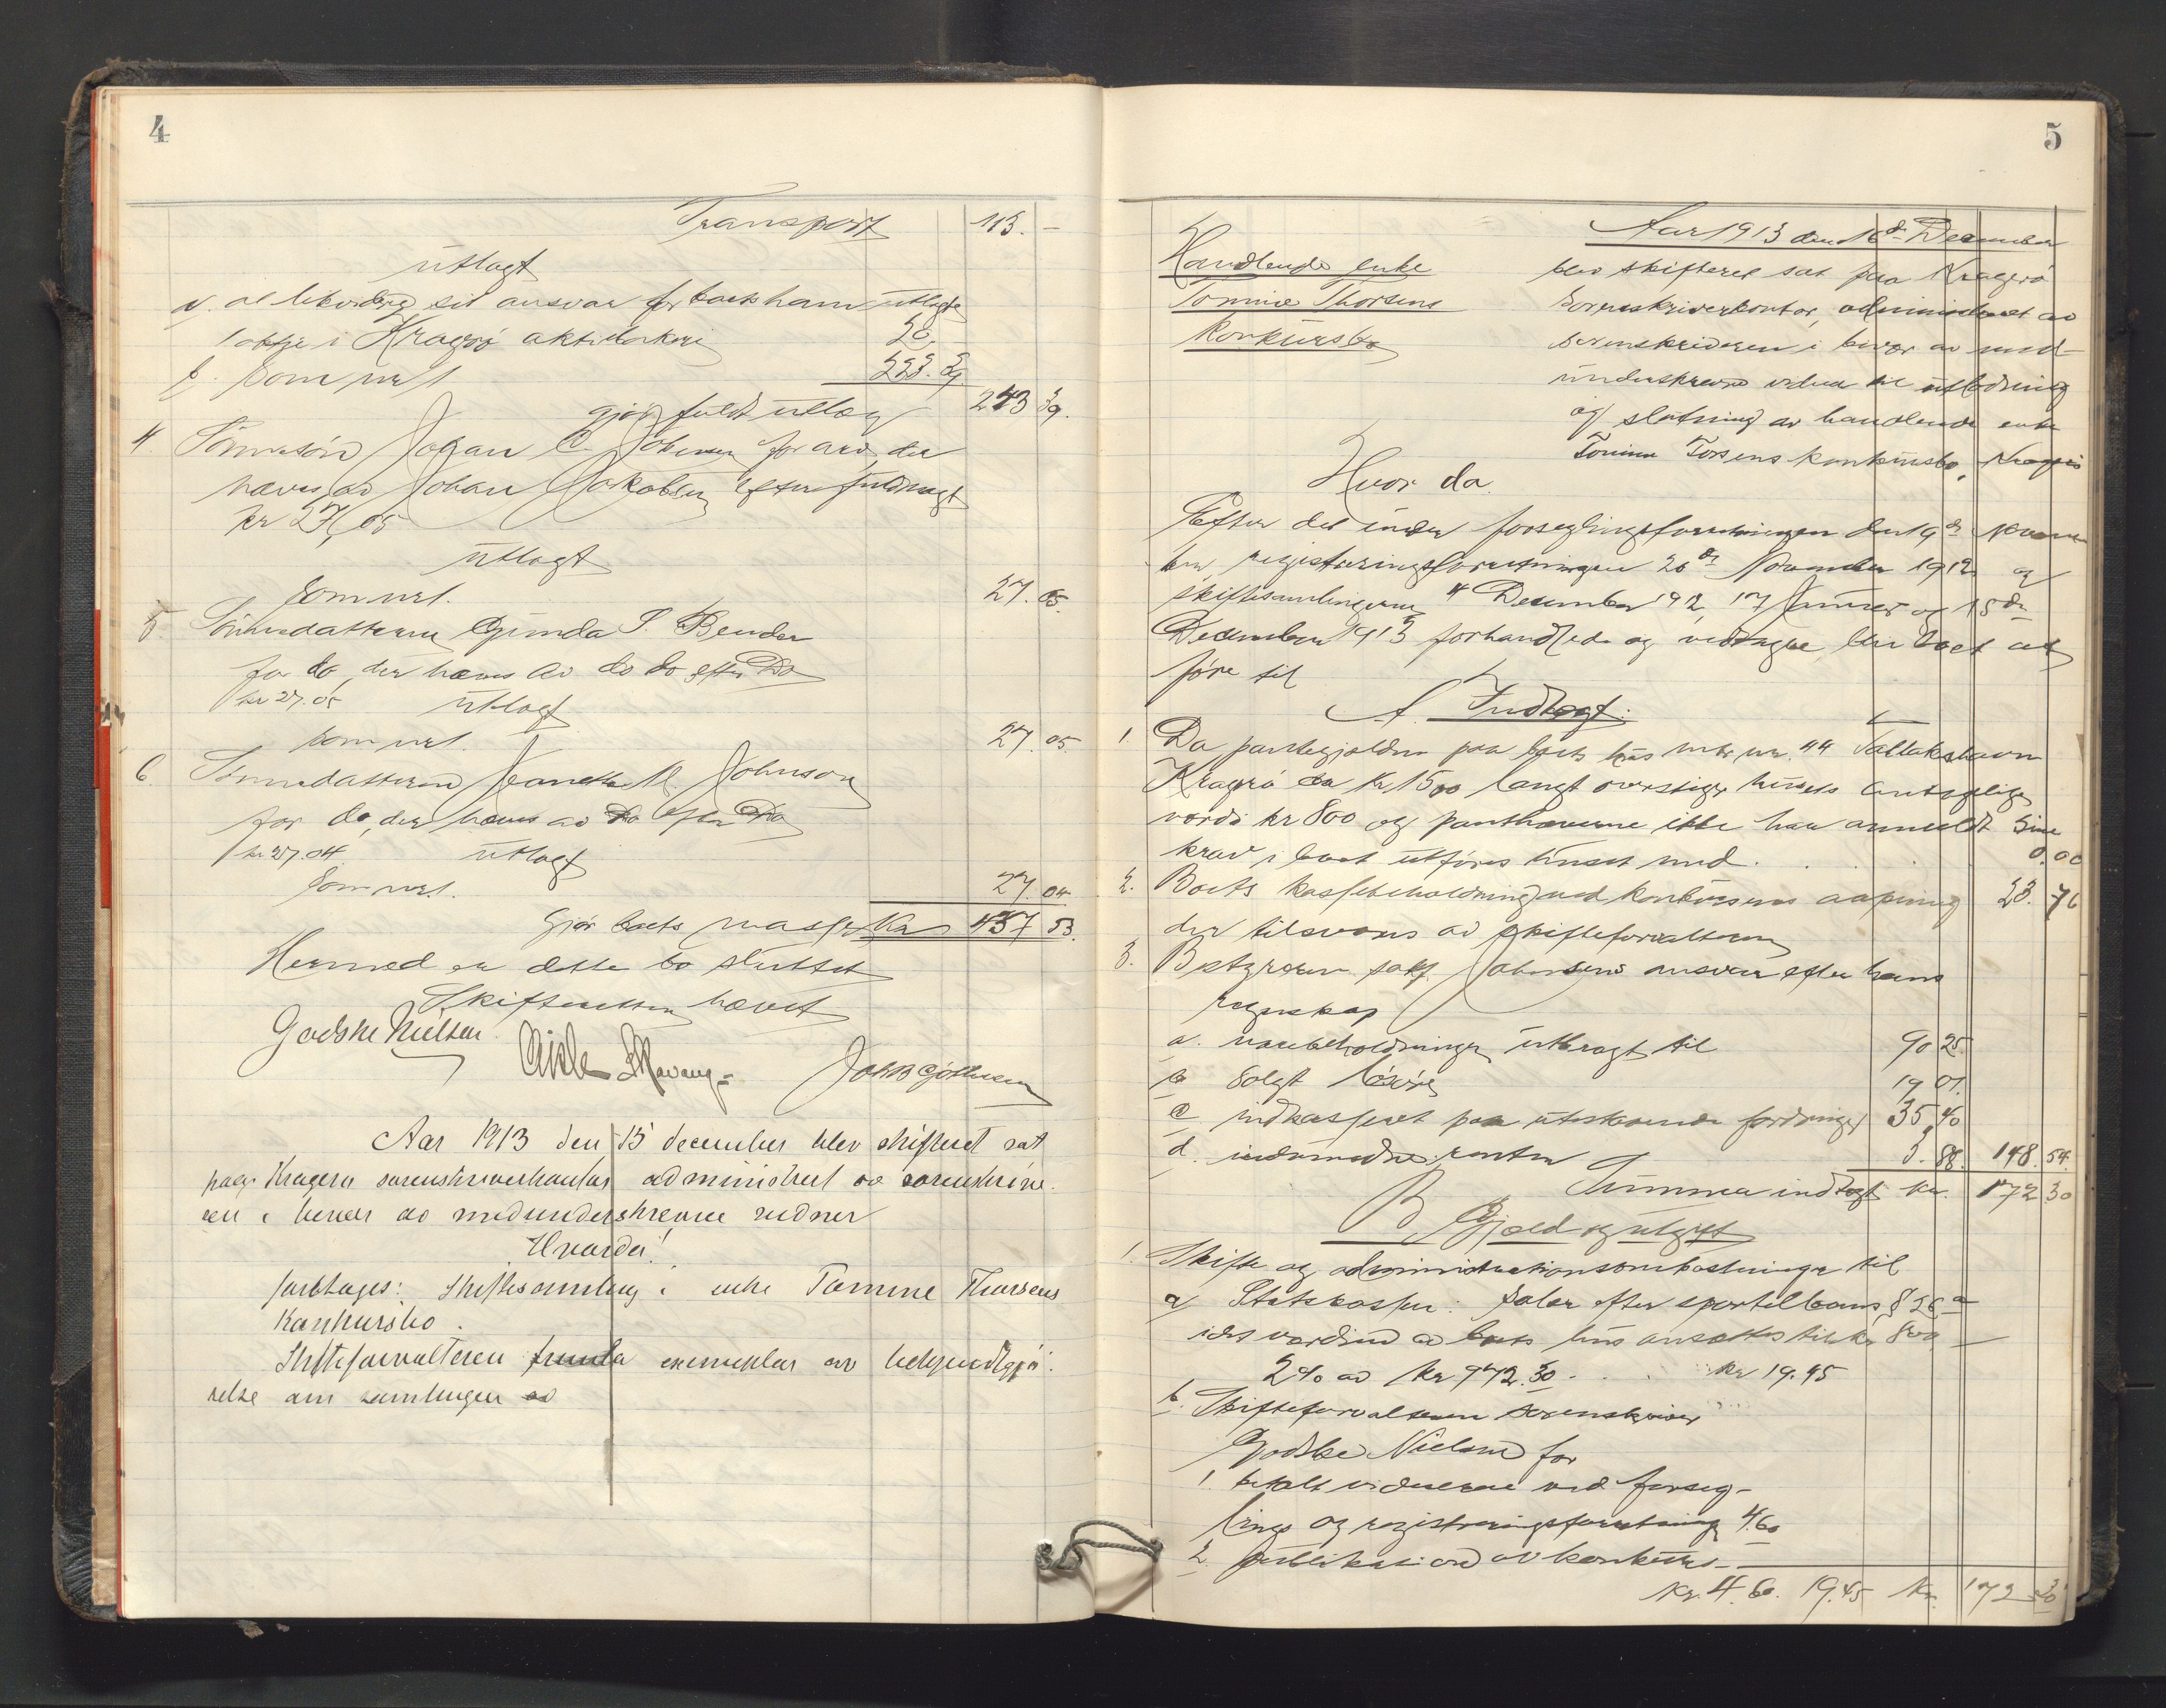 4
Transport 113. –
utlagt
a. at likvidere sit ansvar for boet ham utlagte
1 aktje i Kragerø aktiebokeri 20, –
b. som nr 1 223. 39
gjør fuldt utlæg 243 39.
4. Sønnesøn Johan C. Johnson for arv, der
hæves av Johan Jakobsen efter fuldmagt
kr 27,05
utlagt
som nr 1. 27. 05.
5 Sønnedatteren Gunda S. Bender
for do, der hæves av do do efter Do
kr 27.05 utlagt
som nr 1. 27. 05.
6. Sønnedatteren Jeanette M. Johnson
for do, der hæves av Do efter Do
kr 27.04. utlagt
som nr 1. 27. 04
Gjør boets masse Kr 437 53.
Hermed er dette bo sluttet
Skifteretten hævet
Godske Nielsen.
Aar 1913 den 15 december blev skifteret sat
paa Kragerø sorenskriverkontor administreret av sorenskrive-
ren i bivær av medunderskrevne vidner
Hvorda!
foretages: Skiftesamling i enke Tomine Thorsens
Konkursbo.
Skifteforvalteren fremla exemplar av bekjendtgjø-
relse om samlingen av
5
Aar 1913 den 16de December
Handlende enke
Tomine Thorsens
Konkursbo
blev skifteret sat paa Kragerø
Sorenskriverkontor, administreret av
sorenskriveren i bivær av med-
underskrevne vidner til utlodning
og slutning av handlende enke
Tomine Torsens konkursbo, Kragerø
Hvor da.
Efter det under forseglingsforretningen den 19de Novem-
ber, registreringsforretningen 20de November 1912 og
skiftesamlingerne 4 December 1912, 17 Januar og 15de
December 1913 forhandlede og vedtagne blir boet at
føre til
A. Indtægt:
1. Da pantegjælden paa boets hus matr. nr. 44 Tallakshavn
Kragerø ca Kr 1500 langt overstiger husets antagelige
værdi kr 800 og panthaverne ikke har anmeldt sine
krav i boet utføres huset med . . . 0.00
2. Boets kassebeholdning ved konkursens aapning 23. 76
der tilsvares av skifteforvalteren
3. Bestyreren sakf. Johnsens ansvar efter hans
regnskap
a. varebeholdningen utbragt til 90 25.
b solgt løsøre 19 01.
c indkasseret paa utestaaende fordringer 35,40
d. indvundne renter 3. 88. 148. 54
Summa indtægt kr. 172 30
B Gjæld og utgift
1. Skifte og administrationsomkostninger til
a Statskassen: salær efter sportelloven § 26 a
idet værdien av boets hus ansættes til kr 800 –
2% av kr 972.30 . . . kr 19.45
b. Skifteforvalteren sorenskriver
Godske Nielsen for
1. betalt vidnerne ved forseg-
lings og registreringsforretning 4.60
2. publikasion av konkurs-
Kr. 4.60. 19.45 Kr. 172 30